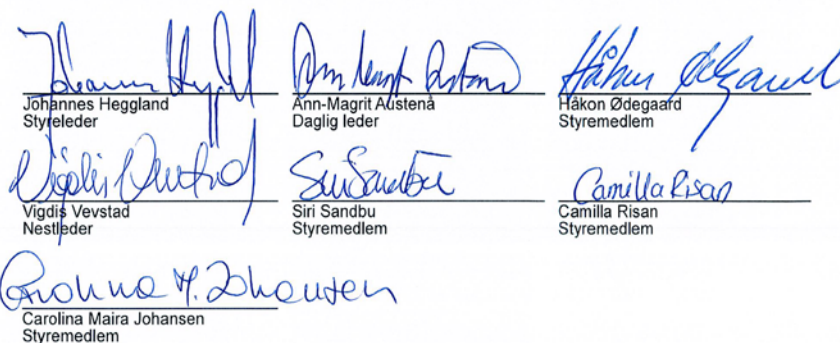 Johannes Heggland
Styreleder
Ann-Magrit Austenå
Daglig leder
Håkon Ødegaard
Styremedlem
Vigdis Vevstad
Nestleder
Siri Sandbu
Siri Sandbu
Styremedlem
Camilla Risan
Camilla Risan
Styremedlem
Carolina Maira Johansen
Styremedlem